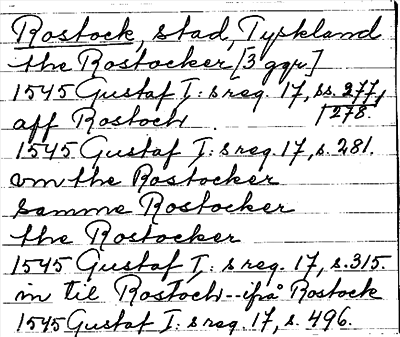 Rostock, stad, Tyskland
the Rostocker [3 ggr]
1545 Gustaf I: s reg. 17, ss. 277,
278.
aff Rostoch
1545 Gustaf I: s reg. 17, s. 281.
om the Rostocker
samme Rostocker
the Rostocker
1545 Gustaf I: s reg. 17, s. 315.
in til Rostoch -- ifrå Rostock
1545 Gustaf I: s reg. 17, s. 496.